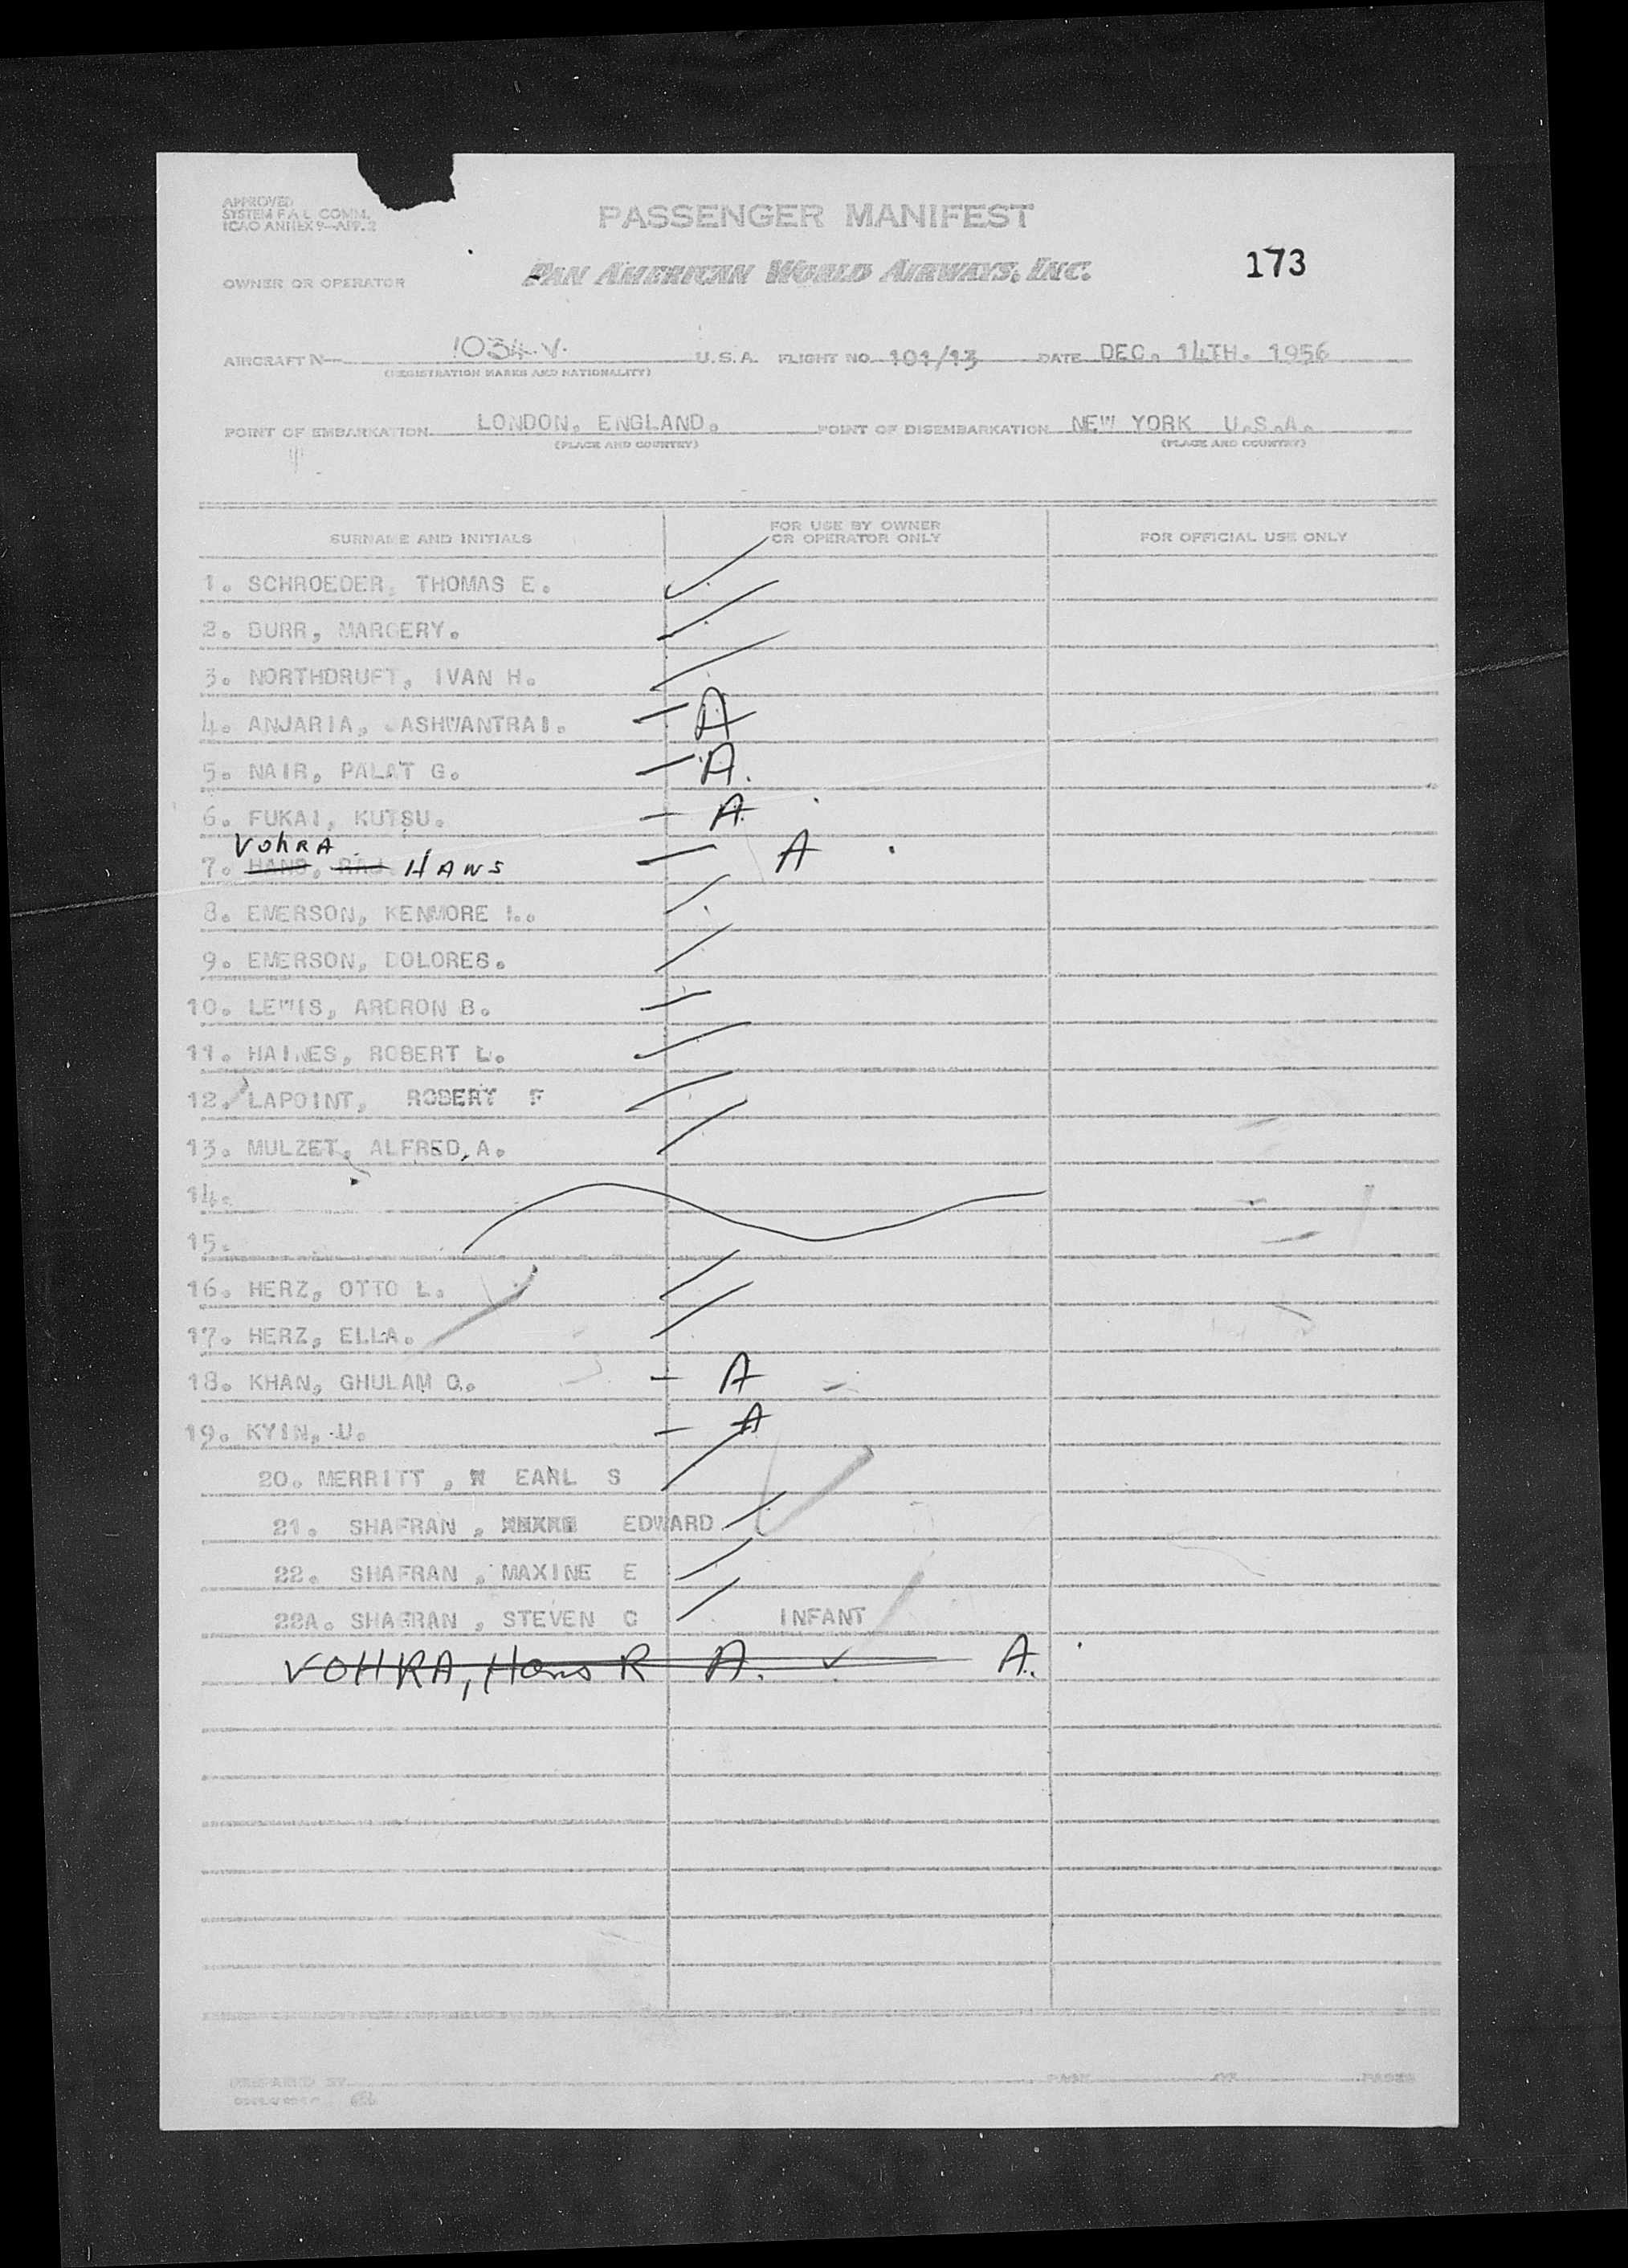 APPROVED
SYSTEM F.A.L. COMM.
ICAO ANNEX 9—APP. 2
PASSENGER MANIFEST
173
OWNER OR OPERATOR PAN AMERICAN WORLD AIRWAYS, INC.
AIRCRAFT N— 1034 V. U.S.A. FLIGHT NO. 101/13 DATE DEC. 14TH. 1956
(REGISTRATION MARKS AND NATIONALITY)
POINT OF EMBARKATION LONDON, ENGLAND. POINT OF DISEMBARKATION NEW YORK U.S.A.
(PLACE AND COUNTRY) (PLACE AND COUNTRY)
SURNAME AND INITIALS FOR USE BY OWNER OR OPERATOR ONLY FOR OFFICIAL USE ONLY
1. SCHROEDER, THOMAS E.
2. BURR, MARGERY.
3. NORTHDRUFT, IVAN H.
4. ANJARIA, JASHWANTRAI. — A
5. NAIR, PALAT G. — A.
6. FUKAI, KUTSU. — A
VOhRA
7. HANS, RAJ HANS — A
8. EMERSON, KENMORE
9. EMERSON, DOLORES.
10. LEWIS, ARDRON B.
11. HAINES, ROBERT L.
12. LAPOINT, ROBERT F
13. MULZET, ALFRED A.
14.
15.
16. HERZ, OTTO L.
17. HERZ, ELLA.
18. KHAN, GHULAM Q. — A
19. KYIN, U. — A
20. MERRITT, EARL S
21. SHAFRAN, EDWARD
22. SHAFRAN, MAXINE E
22A. SHAFRAN, STEVEN C INFANT
VOHRA, Hans R A. ✓ A.
PREPARED BY PAGE OF PAGES